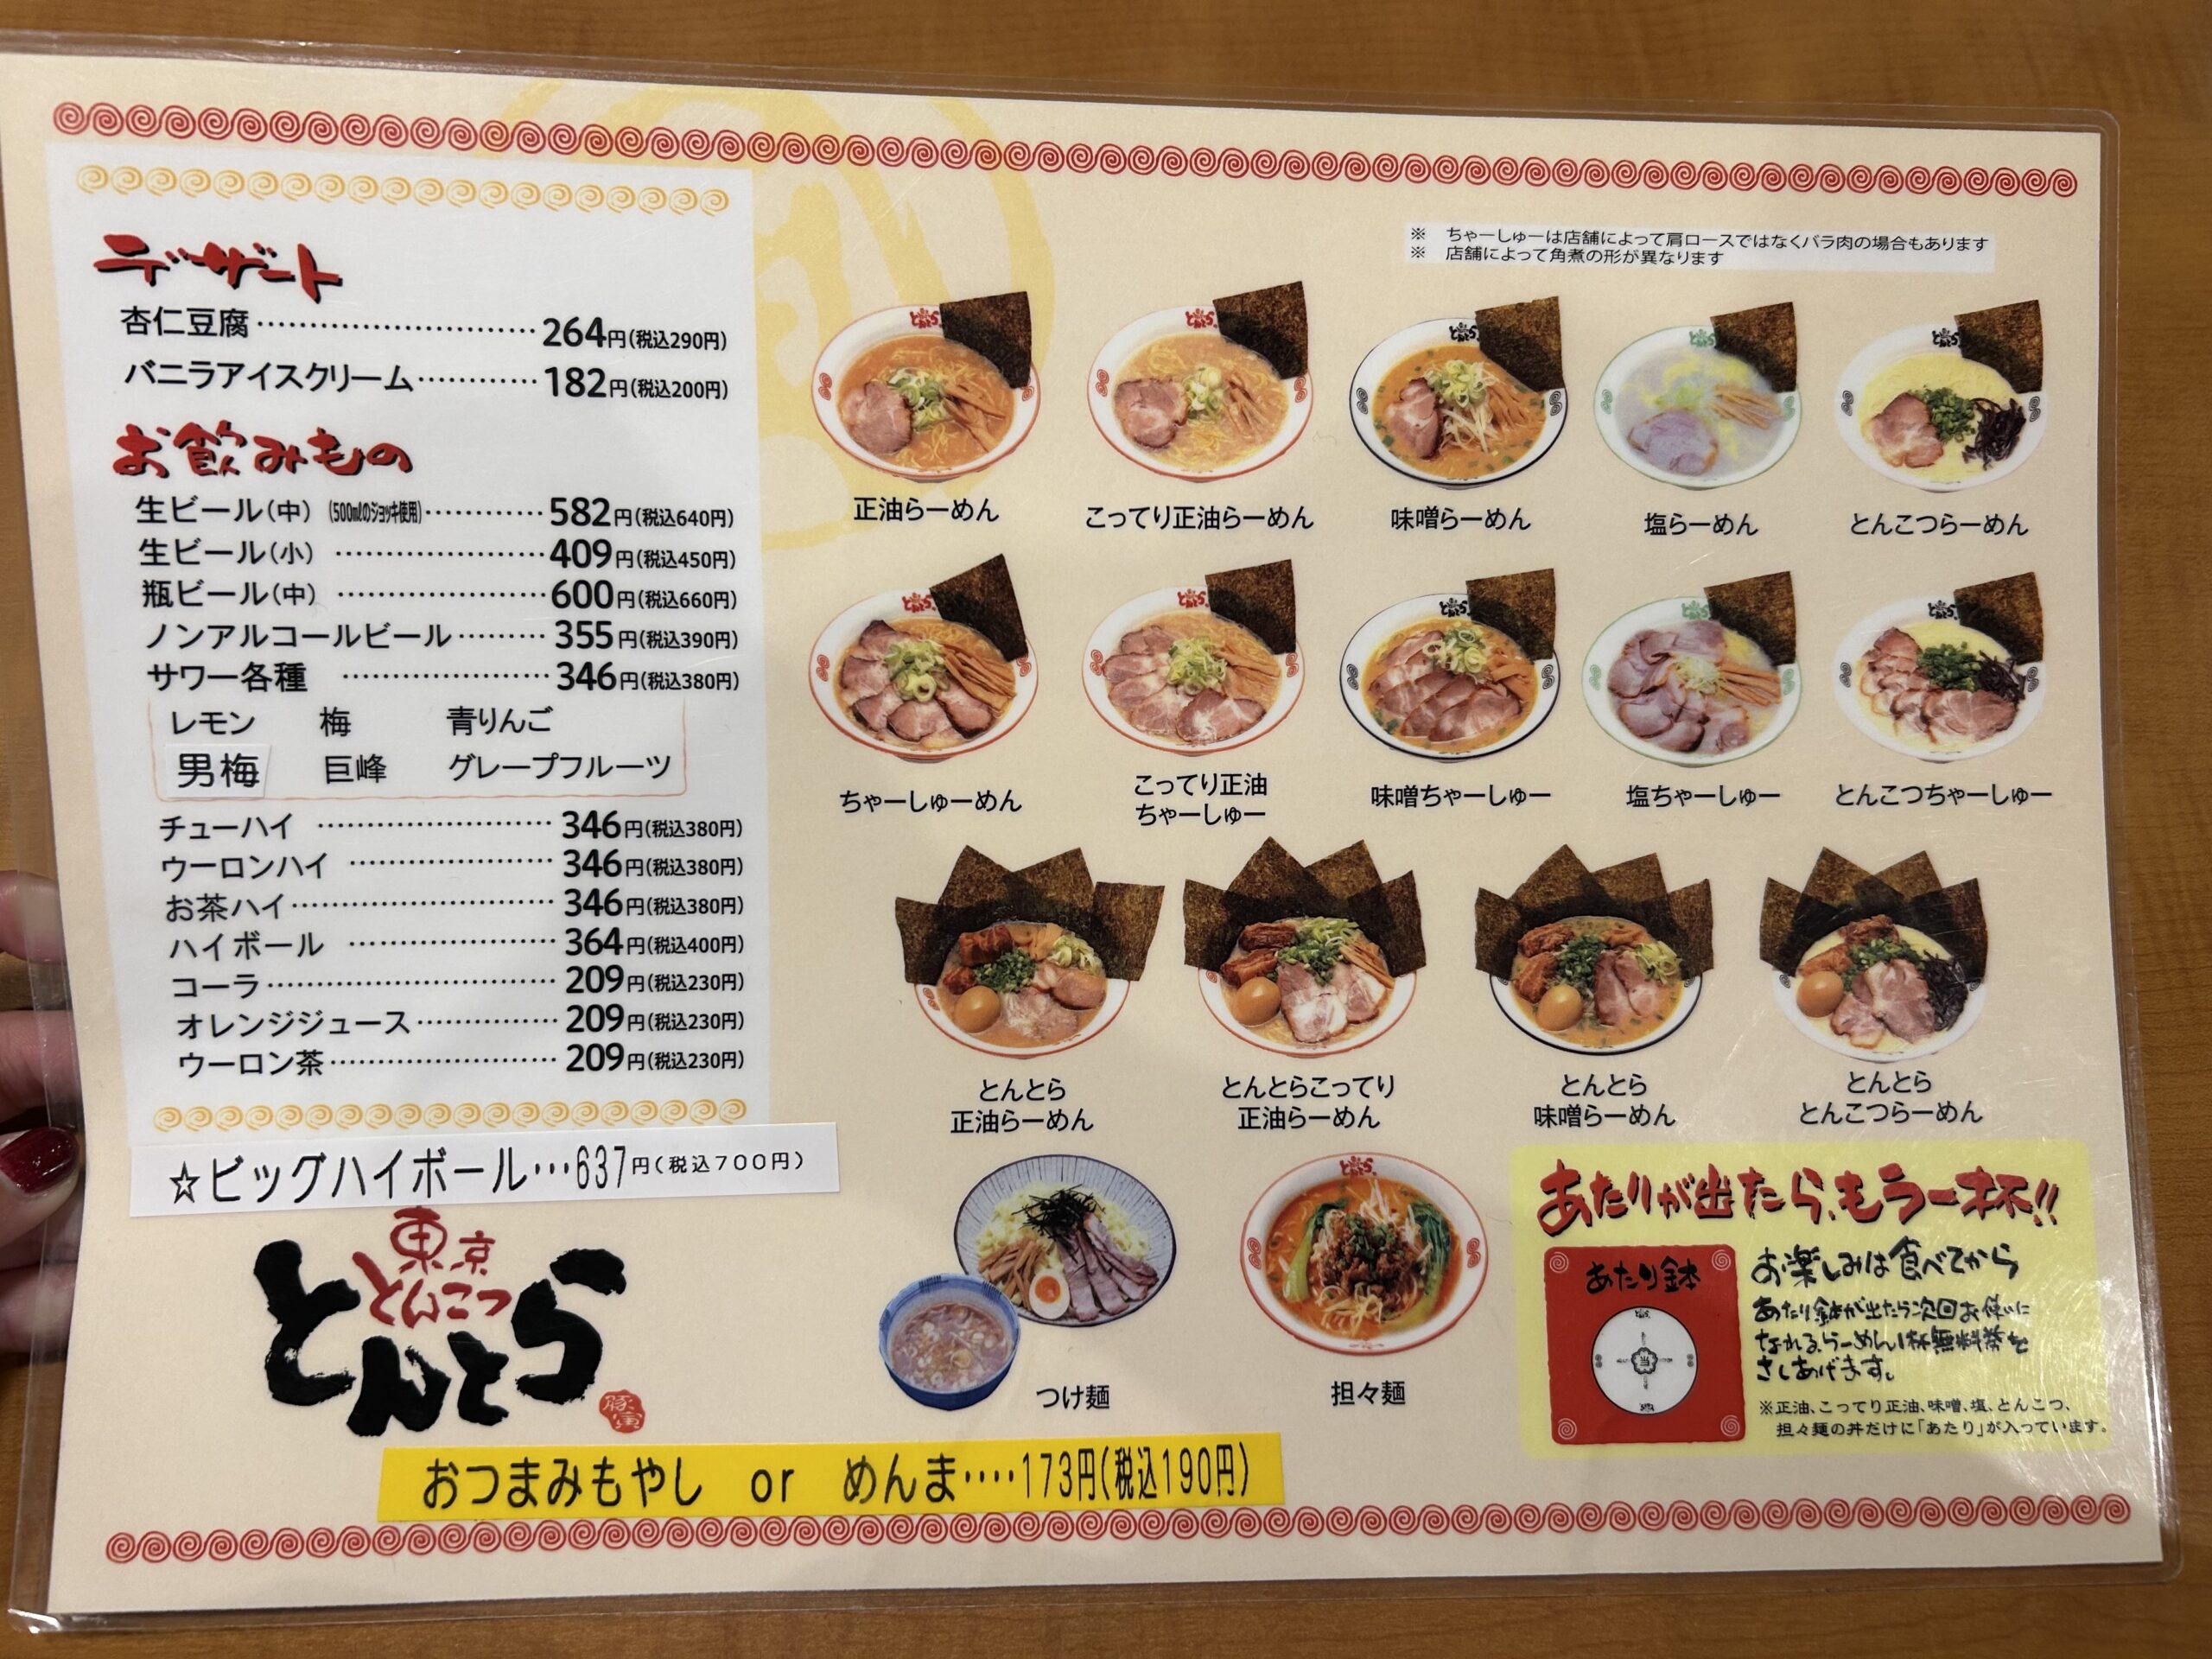 デザート
杏仁豆腐……………………264円(税込290円)
バニラアイスクリーム…………182円(税込200円)
お飲みもの
生ビール(中) (500mlのジョッキ使用)…………582円(税込640円)
生ビール(小) …………………409円(税込450円)
瓶ビール(中) …………………600円(税込660円)
ノンアルコールビール………355円(税込390円)
サワー各種 …………………346円(税込380円)
レモン 梅 青りんご
男梅 巨峰 グレープフルーツ
チューハイ …………………346円(税込380円)
ウーロンハイ …………………346円(税込380円)
お茶ハイ……………………346円(税込380円)
ハイボール …………………364円(税込400円)
コーラ………………………209円(税込230円)
オレンジジュース……………209円(税込230円)
ウーロン茶…………………209円(税込230円)
☆ビッグハイボール…637円(税込700円)
東京
とんこつ
とんとら
豚寅
おつまみもやし or めんま‥‥173円(税込190円)
※ ちゃーしゅーは店舗によって肩ロースではなくバラ肉の場合もあります
※ 店舗によって角煮の形が異なります
正油らーめん
こってり正油らーめん
味噌らーめん
塩らーめん
とんこつらーめん
ちゃーしゅーめん
こってり正油
ちゃーしゅー
味噌ちゃーしゅー
塩ちゃーしゅー
とんこつちゃーしゅー
とんとら
正油らーめん
とんとらこってり
正油らーめん
とんとら
味噌らーめん
とんとら
とんこつらーめん
つけ麺
担々麺
あたりが出たら、もう一杯!!
あたり鉢
当
お楽しみは食べてから
あたり鉢が出たら次回お使いに
なれる、らーめん1杯無料券を
さしあげます。
※正油、こってり正油、味噌、塩、とんこつ、
担々麺の丼だけに「あたり」が入っています。